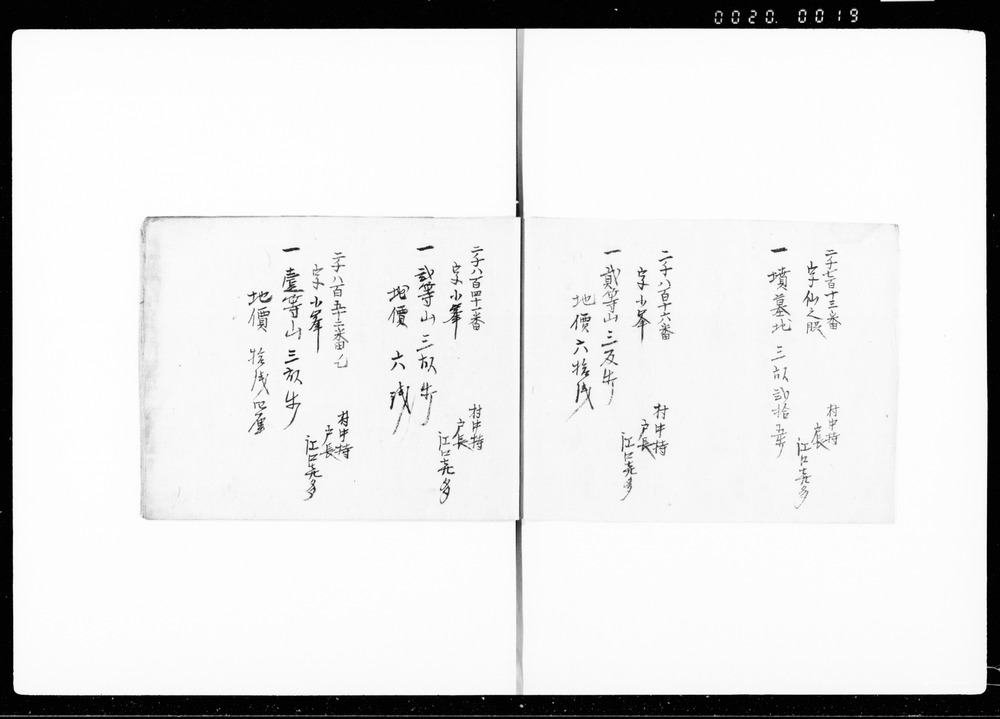 0020 0019
二千七百十三番
字仙之
一 墳墓地 三畝弐拾歩
村中持
戸長
江口嘉多
二千八百十六番
字小峯
一 貳等山 三反歩
地價 六拾銭
村中持
戸長
江口嘉多
二千八百四十一番
字小峯
一 弐等山 三畝歩
地價 六銭
村中持
戸長
江口嘉多
二千八百五十二番乙
字小峯
一 壹等山 三畝歩
地價 拾銭四厘
村中持
戸長
江口嘉多